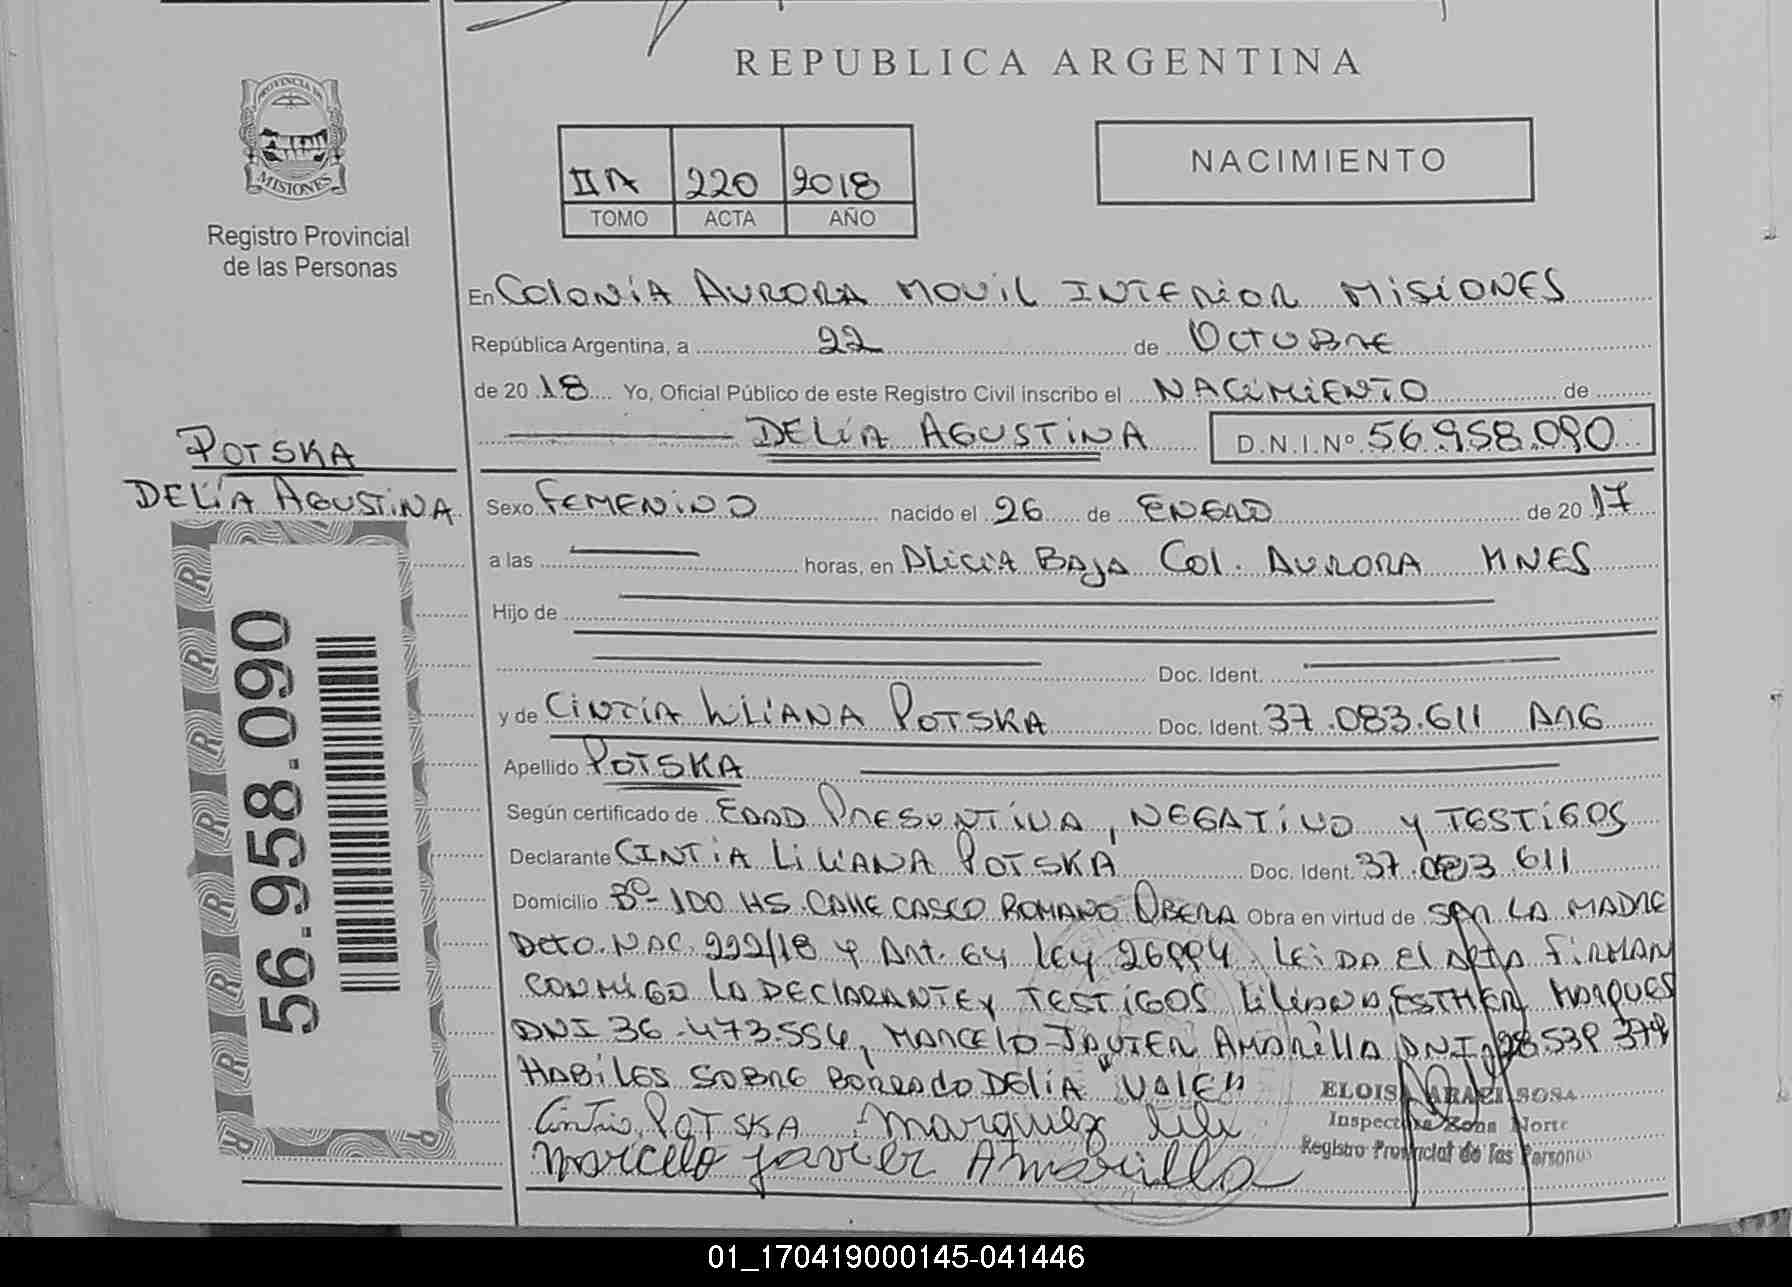 REPUBLICA ARGENTINA
PROVINCIA DE
MISIONES
Registro Provincial
de las Personas
IIA 220 2018
TOMO ACTA AÑO
NACIMIENTO
En COLONIA AURORA MOVIL INTERIOR MISIONES
República Argentina, a 22 de OCTUBRE
de 20 18 Yo, Oficial Público de este Registro Civil inscribo el NACIMIENTO de
DELIA AGUSTINA D.N.I.Nº 56.958.090
POTSKA
DELIA AGUSTINA
56.958.090
Sexo FEMENINO nacido el 26 de ENERO de 20 17
a las horas, en ALICIA BAJA COL. AURORA MNES
Hijo de
Doc. Ident.
y de CINTIA LILIANA POTSKA Doc. Ident. 37.083.611 ARG
Apellido POTSKA
Según certificado de EDAD PRESUNTIVA, NEGATIVO Y TESTIGOS
Declarante CINTIA LILIANA POTSKA Doc. Ident. 37.083.611
Domicilio Bº 100 HS. CALLE CASCO ROMANO OBERA Obra en virtud de SER LA MADRE
DCTO. NAC. 222/18 Y ART. 64 LEY 26994. LEIDA EL ACTA FIRMAN
CONMIGO LA DECLARANTE Y TESTIGOS LILIANA ESTHER MARQUES
DNI 36.473.554, MARCELO JAVIER AMARILLA DNI 28539 379
HABILES SOBRE BORRADO DELIA "VALE"
Cintia POTSKA Marquez Lili
Marcelo Javier Amarilla
ELOISA ARACI SOSA
Inspectora Zona Norte
Registro Provincial de las Personas
01_170419000145-041446